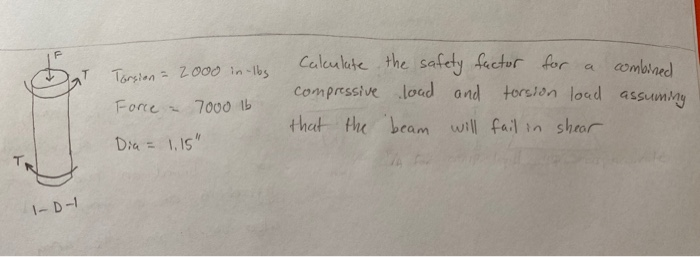 F
T
Torsion = 2000 in-lbs
Force = 7000 lb
Dia = 1.15"
T
1-D-1
Calculate the safety factor for a combined
compressive load and torsion load assuming
that the beam will fail in shear